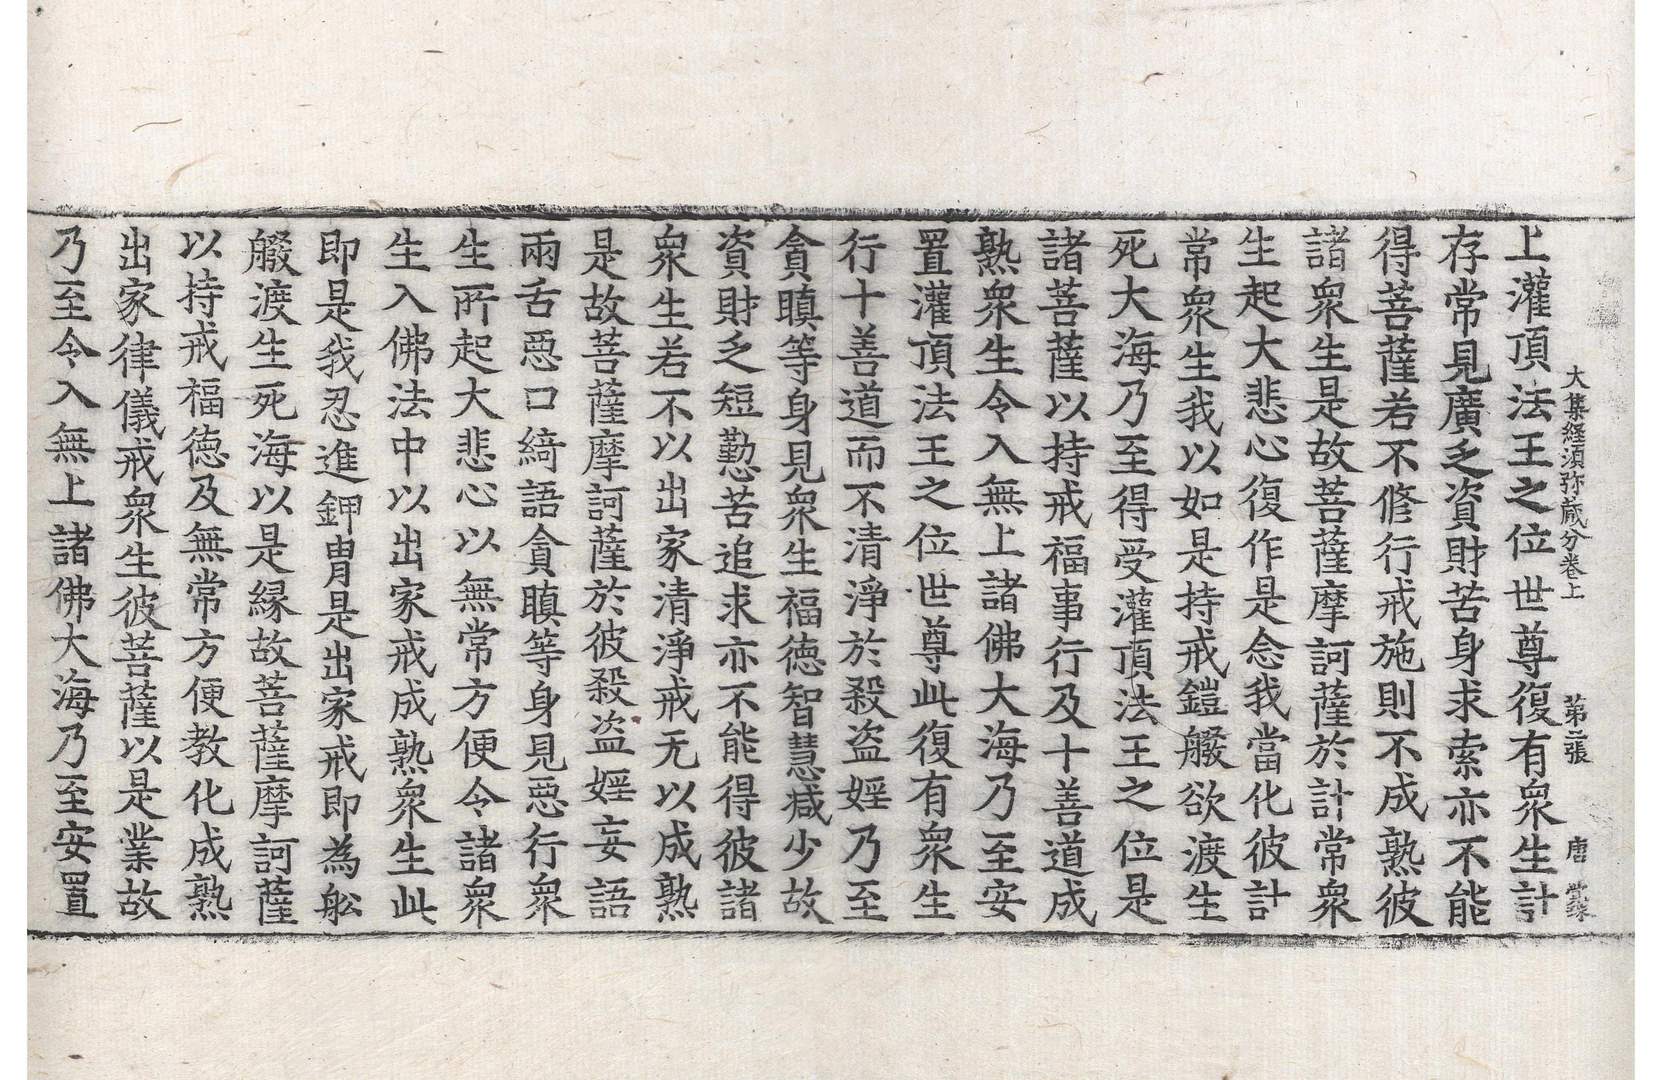 大集経須弥蔵分卷上　第二張　唐
上灌頂法王之位世尊復有衆生計
存常見廣乏資財苦身求索亦不能
得菩薩若不修行戒施則不成熟彼
諸衆生是故菩薩摩訶薩於計常衆
生起大悲心復作是念我當化彼計
常衆生我以如是持戒鎧艤欲渡生
死大海乃至得受灌頂法王之位是
諸菩薩以持戒福事行及十善道成
熟衆生令入無上諸佛大海乃至安
置灌頂法王之位世尊此復有衆生
行十善道而不清淨於殺盗婬乃至
貪瞋等身見衆生福徳智慧减少故
資財乏短懃苦追求亦不能得彼諸
衆生若不以出家清淨戒无以成熟
是故菩薩摩訶薩於彼殺盗婬妄語
兩舌惡口綺語貪瞋等身見惡行衆
生所起大悲心以無常方便令諸衆
生入佛法中以出家戒成熟衆生此
即是我忍進鉀胄是出家戒即為舩
艤渡生死海以是縁故菩薩摩訶薩
以持戒福徳及無常方便教化成熟
出家律儀戒衆生彼菩薩以是業故
乃至令入無上諸佛大海乃至安置